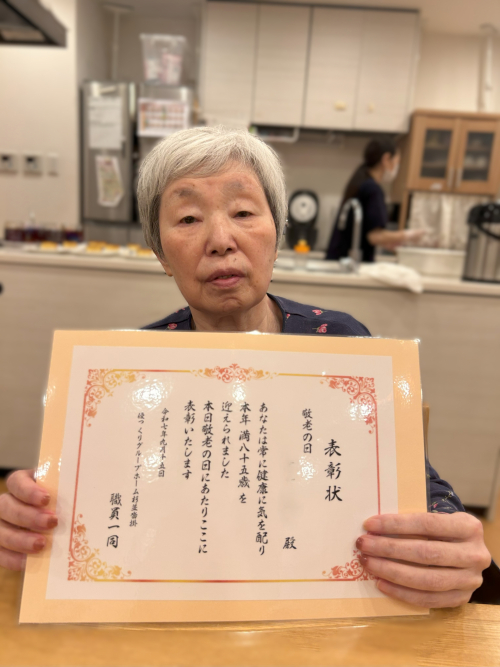 表彰状
敬老の日
殿
あなたは常に健康に気を配り
本年 満八十五歳 を
迎えられました
本日敬老の日にあたりここに
表彰いたします
令和七年九月十五日
ほっくりグループホーム杉並沓掛
職員一同